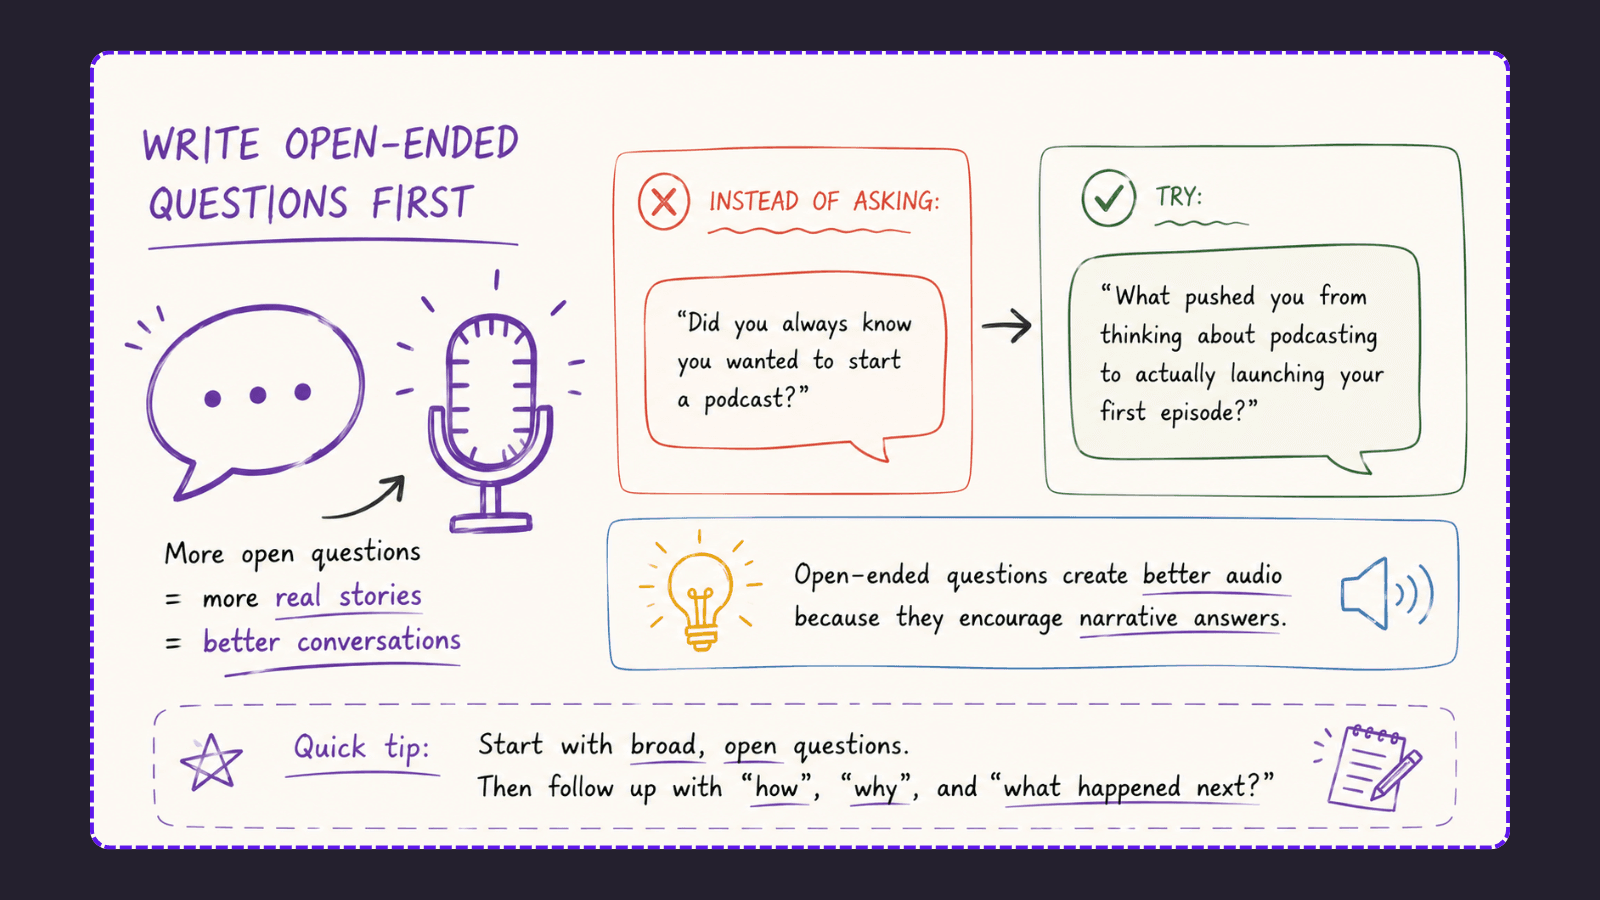 WRITE OPEN-ENDED
QUESTIONS FIRST
More open questions
= more real stories
= better conversations
INSTEAD OF ASKING:
“Did you always know
you wanted to start
a podcast?”
TRY:
“What pushed you from
thinking about podcasting
to actually launching your
first episode?”
Open-ended questions create better audio
because they encourage narrative answers.
Quick tip:
Start with broad, open questions.
Then follow up with “how”, “why”, and “what happened next?”